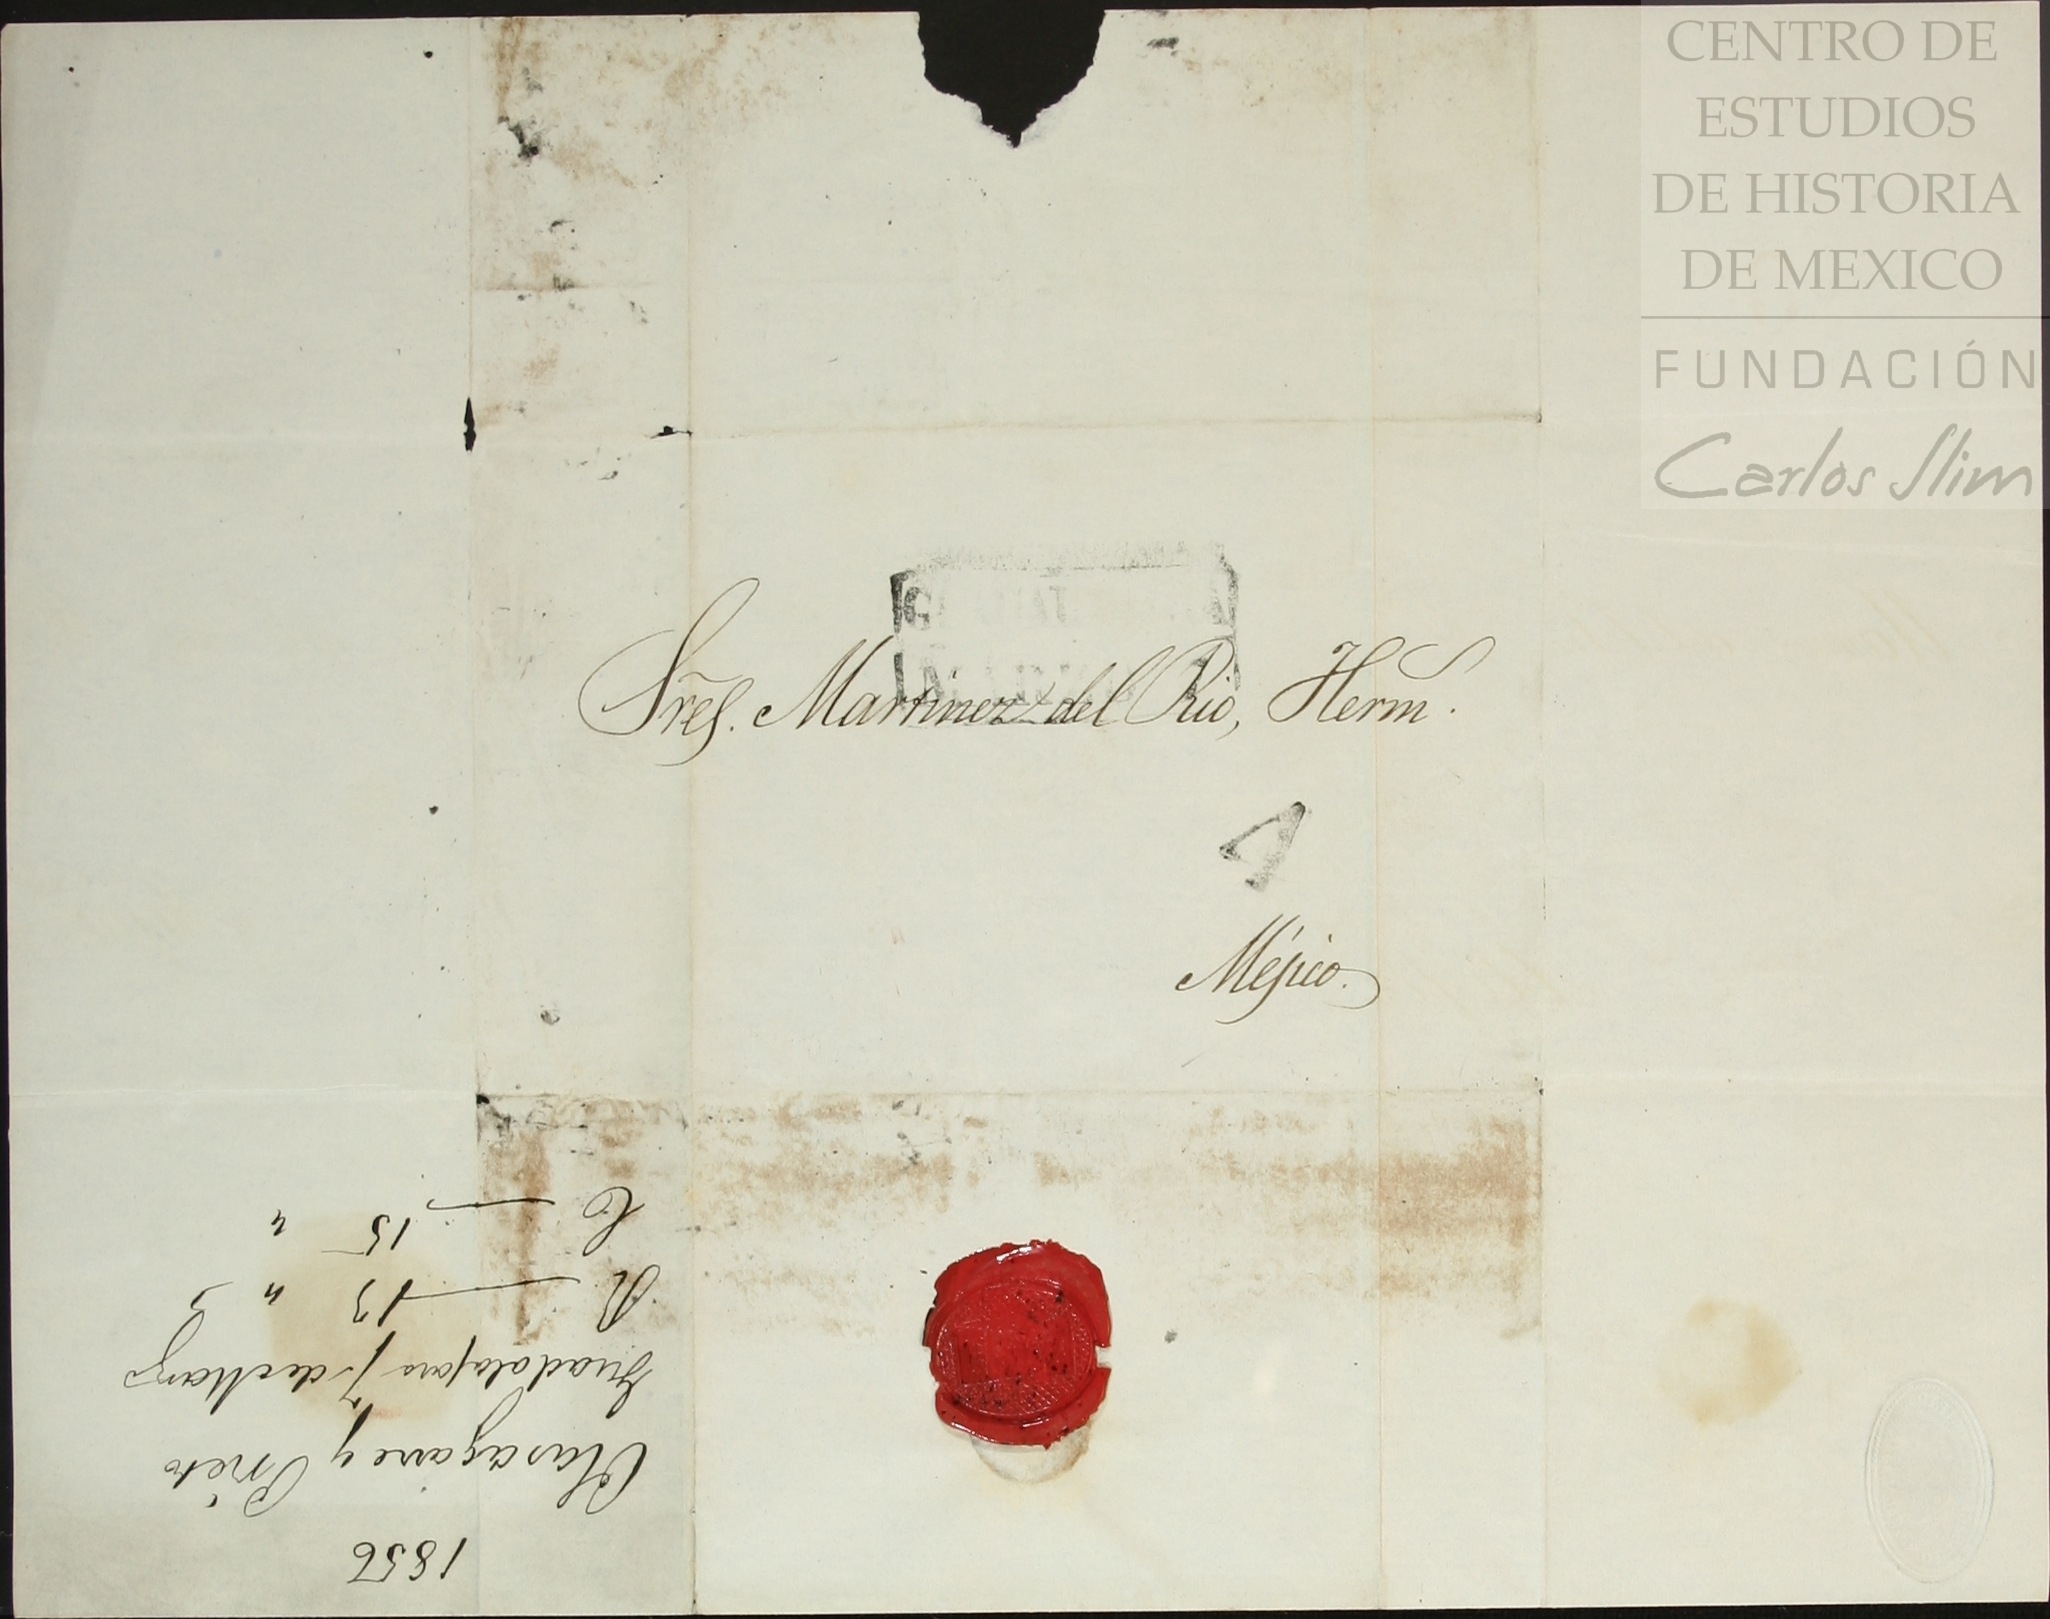 CENTRO DE
ESTUDIOS
DE HISTORIA
DE MEXICO
FUNDACIÓN
Carlos Slim
Sres. Martinez del Rio, Herms.
Méjico.
1856
Olasagarre y Prieto
Guadalajara 7 de Marzo
R. — 13 " "
C — 15 "